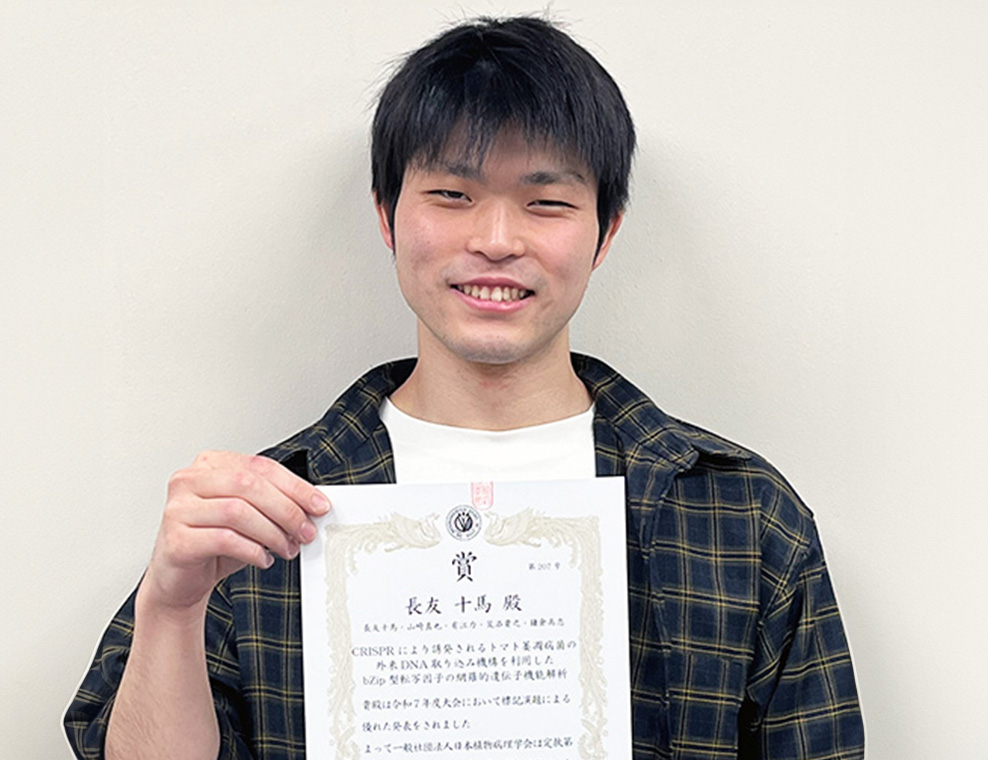 賞
第207号
長友 十馬 殿
長友十馬・山﨑真也・有江力・
CRISPRにより誘発されるトマト萎凋病菌の
外来DNA取り込み機構を利用した
bZip型転写因子の網羅的遺伝子機能解析
貴殿は令和7年度大会において標記演題による
優れた発表をされました
よって一般社団法人日本植物病理学会は定款第